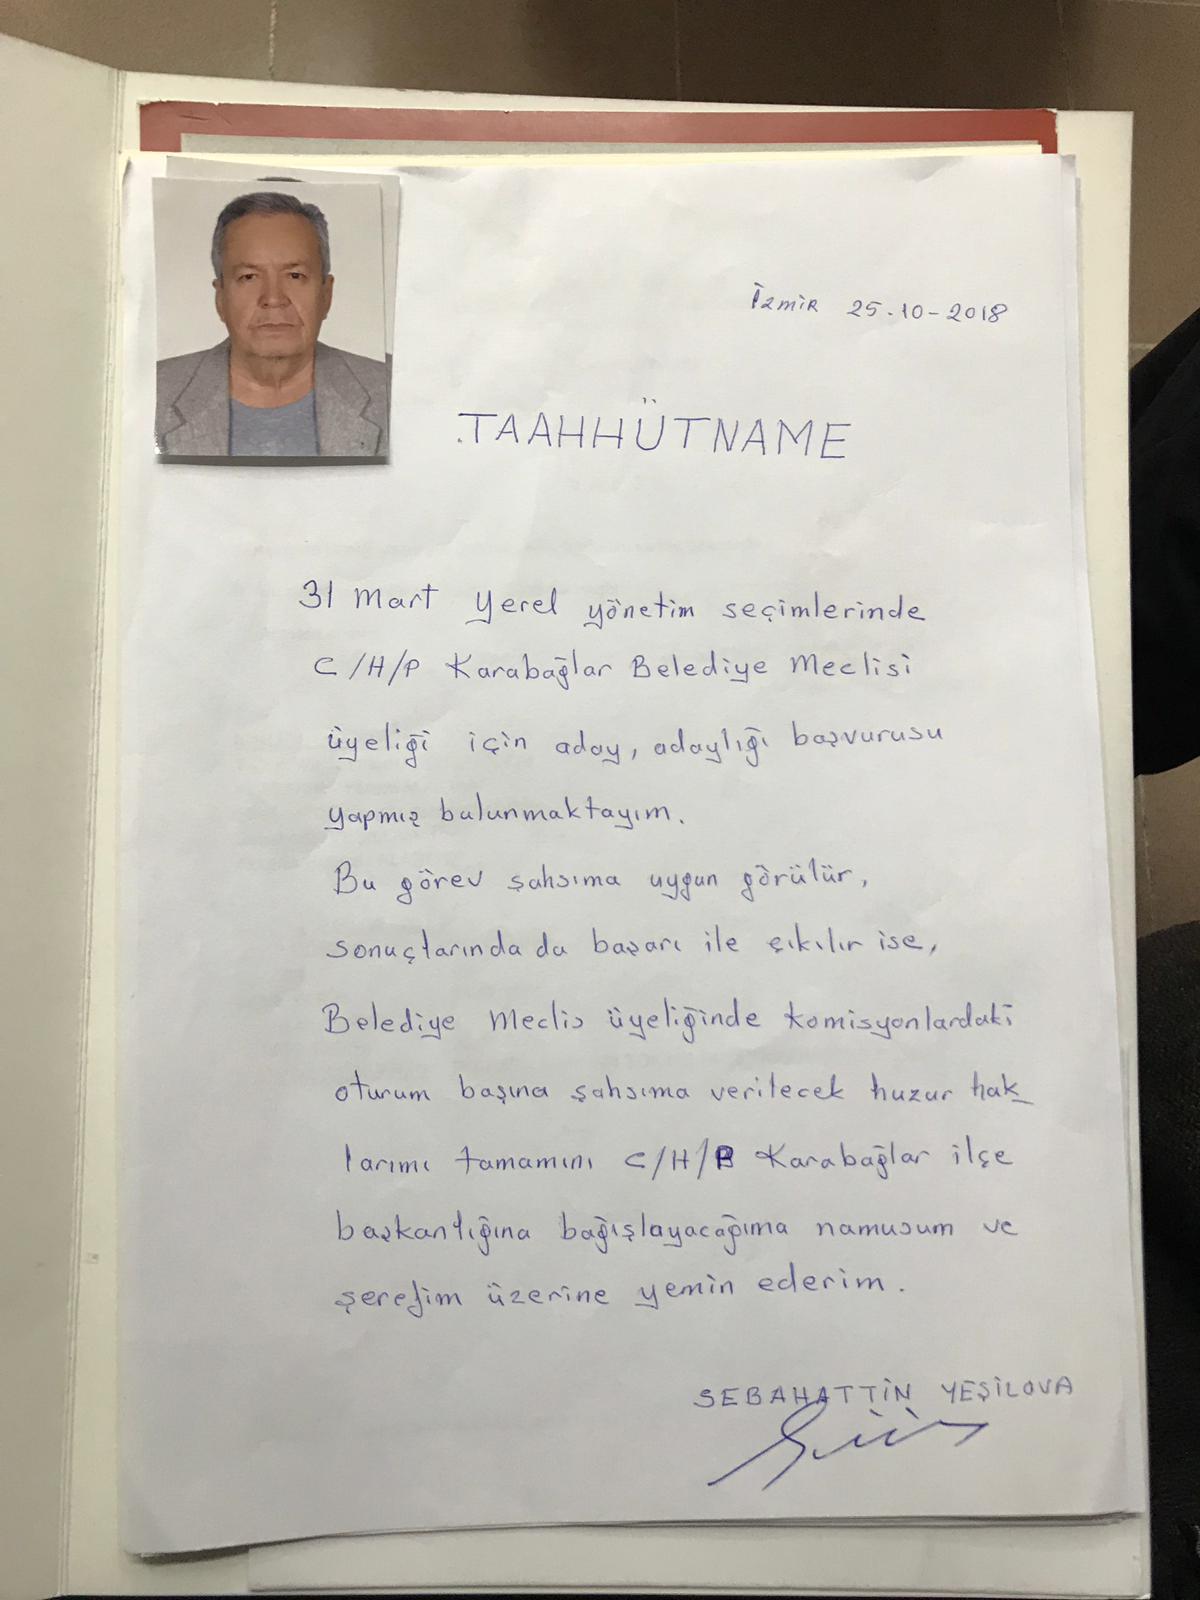 İzmir 25-10-2018
TAAHHÜTNAME
31 Mart Yerel yönetim seçimlerinde
C/H/P Karabağlar Belediye Meclisi
üyeliği için aday, adaylığı başvurusu
yapmış bulunmaktayım.
Bu görev şahsıma uygun görülür,
sonuçlarında da başarı ile çıkılır ise,
Belediye Meclis üyeliğinde komisyonlardaki
oturum başına şahsıma verilecek huzur hak_
larımı tamamını C/H/P Karabağlar ilçe
başkanlığına bağışlayacağıma namusum ve
şerefim üzerine yemin ederim.
SEBAHATTİN YEŞİLOVA